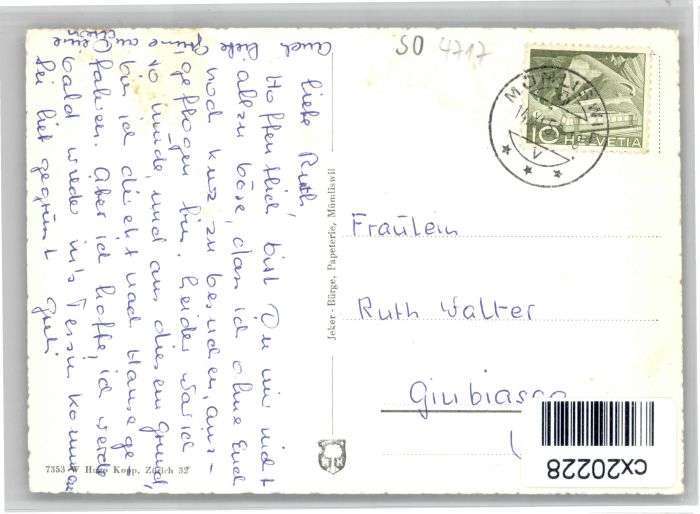 SO 4717
MÜMLISWIL
10 HELVETIA
V
Liebe Ruth,
Hoffentlich bist Du mir nicht
allzu böse, dass ich ohne Euch
noch kurz zu besuchen, aus-
geflogen bin. Leider war ich
so müde, und aus diesem Grund,
bin ich direkt nach Hause ge-
fahren. Aber ich hoffe, ich werde
bald wieder in's Tessin kommen
Sei lieb gegrüsst
Jeker-Bürge, Papeterie, Mümliswil
Fräulein
Ruth Walter
Giubiasco
7353 W Hugo Kopp, Zürich 32
cx20228